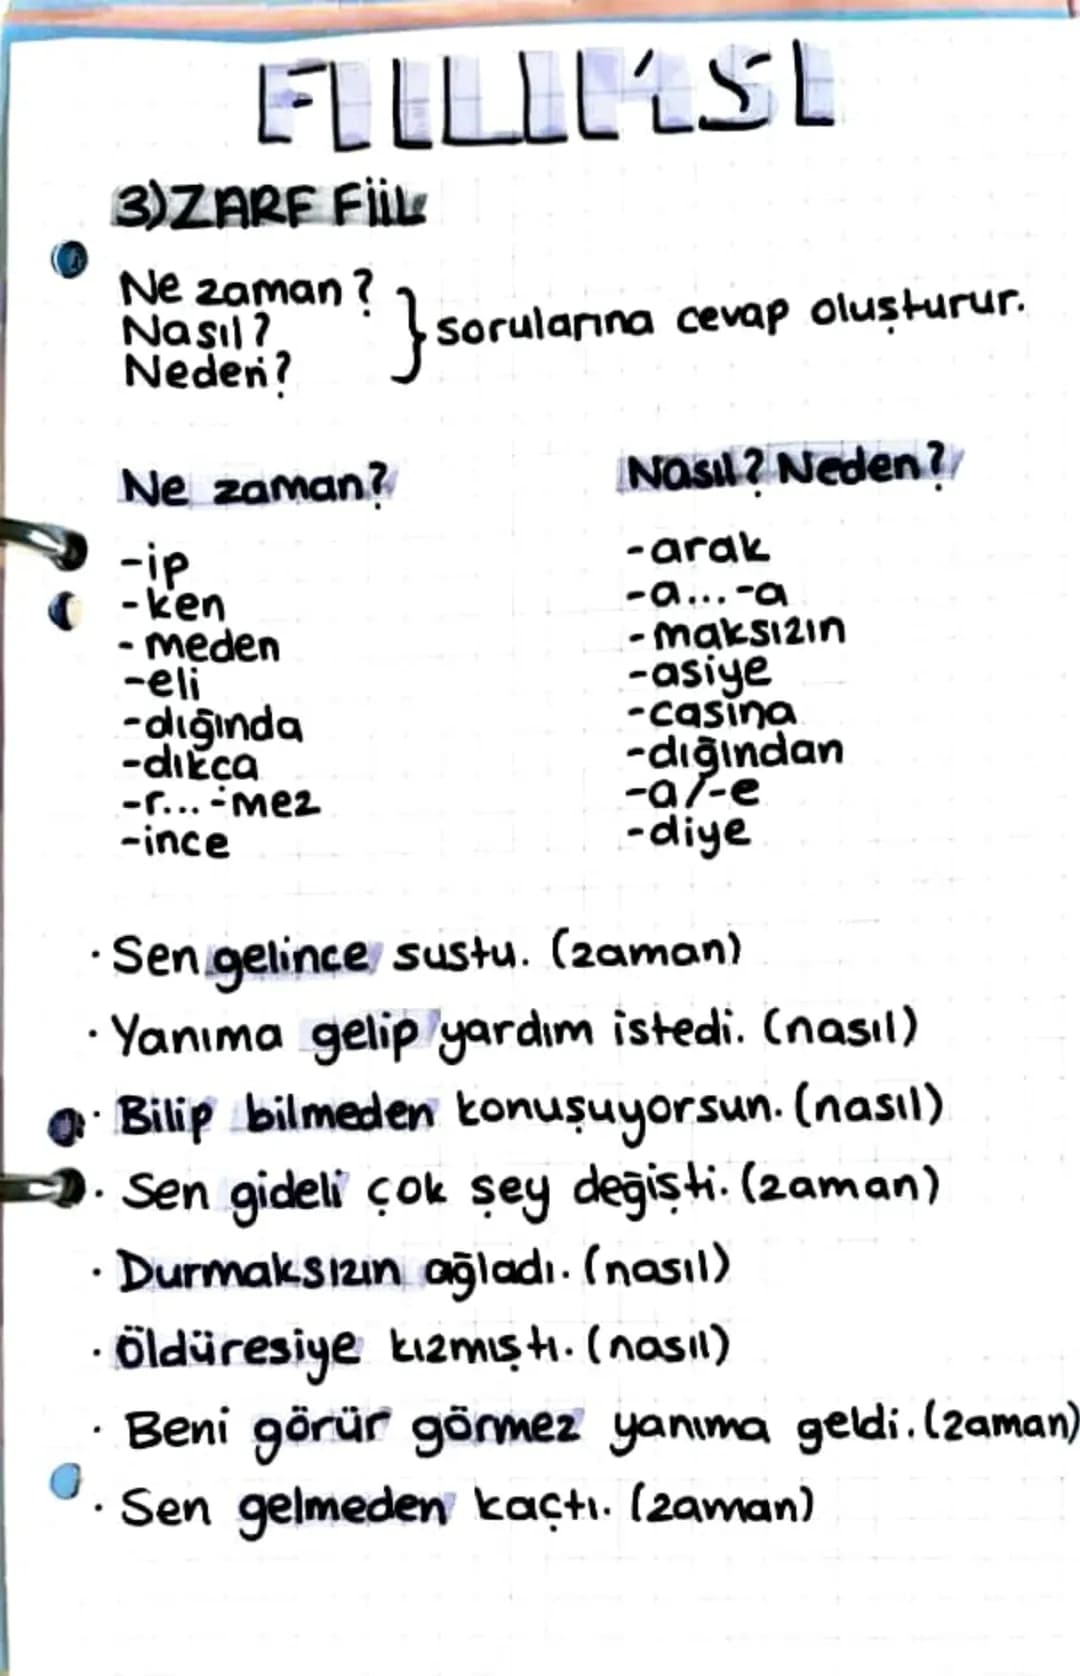 FİİLİMSİ
3) ZARF FİİL
Ne zaman?
Nasıl?
Neden?
} sorularına cevap oluşturur.
Ne zaman?
-ip
-ken
-meden
-eli
-dığında
-dıkca
-r...-mez
-ince
Nasıl? Neden?
-arak
-a...-a
-maksızın
-asiye
-casina
-dığından
-a/-e
-diye
· Sen gelince sustu. (zaman)
· Yanıma gelip yardım istedi. (nasıl)
· Bilip bilmeden konuşuyorsun. (nasıl)
· Sen gideli çok şey değişti. (zaman)
· Durmaksızın ağladı. (nasıl)
· Öldüresiye kızmıştı. (nasıl)
· Beni görür görmez yanıma geldi. (zaman)
· Sen gelmeden kaçtı. (zaman)